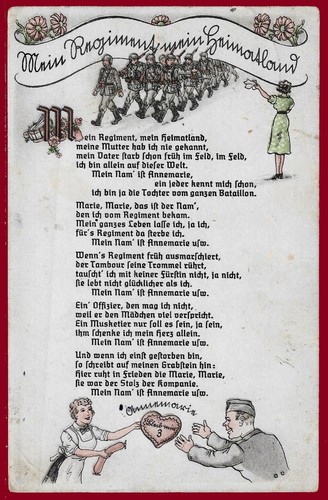 Mein Regiment, mein Heimatland
Mein Regiment, mein Heimatland,
meine Mutter hab ich nie gekannt,
mein Vater starb schon früh im Feld, im Feld,
ich bin allein auf dieser Welt.
Mein Nam' ist Annemarie,
ein jeder kennt mich schon,
ich bin ja die Tochter vom ganzen Bataillon.
Marie, Marie, das ist der Nam',
den ich vom Regiment bekam.
Mein ganzes Leben lasse ich, ja ich,
für's Regiment da sterbe ich.
Mein Nam' ist Annemarie usw.
Wenn's Regiment früh ausmarschiert,
der Tambour seine Trommel rührt,
tauscht' ich mit keiner Fürstin nicht, ja nicht,
sie lebt nicht glücklicher als ich.
Mein Nam' ist Annemarie usw.
Ein' Offizier, den mag ich nicht,
weil er den Mädchen viel verspricht.
Ein Musketier nur soll es sein, ja sein,
ihm schenke ich mein Herz allein.
Mein Nam' ist Annemarie usw.
Und wenn ich einst gestorben bin,
so schreibt auf meinen Grabstein hin:
Hier ruht in Frieden die Marie, Marie,
sie war der Stolz der Kompanie.
Mein Nam' ist Annemarie usw.
Annemarie
3